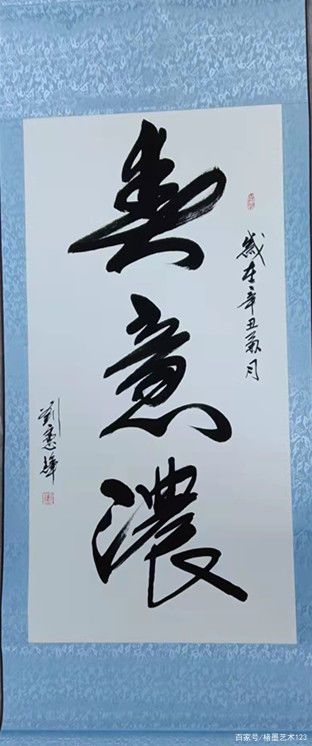 歲在辛丑夏月
春意濃
劉
百家号/格墨艺术123